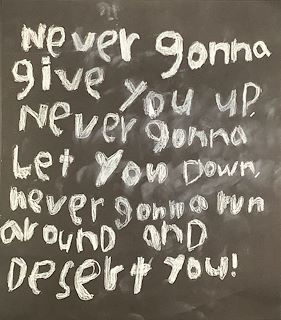 Never gonna
give You up,
Never gonna
Let You Down,
never gonna run
around and
Desert You!